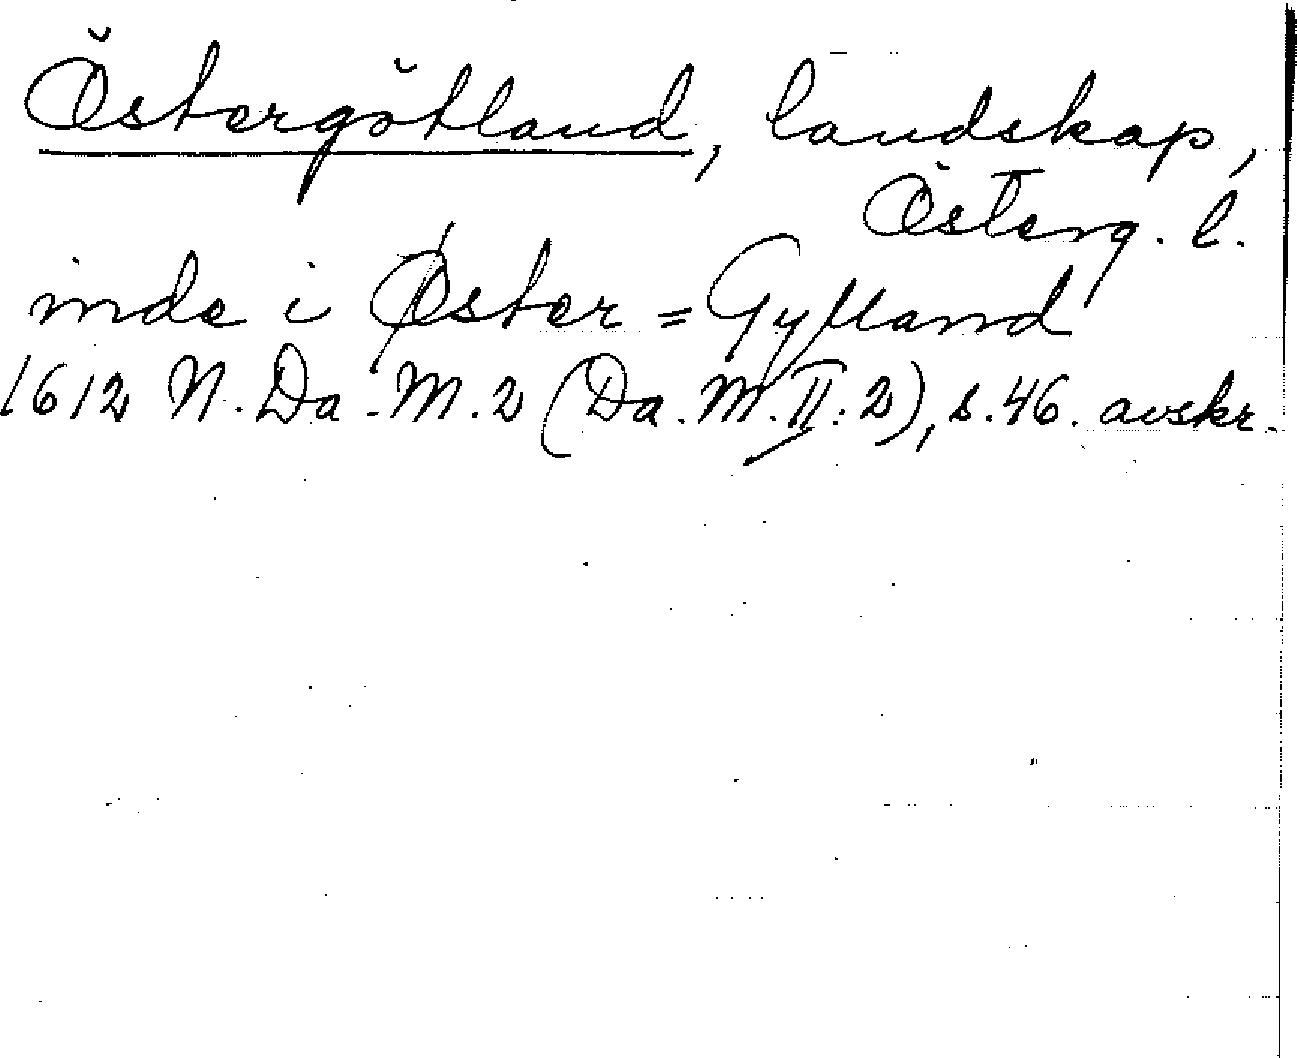 Östergötland, landskap,
Österg. l.
inde i Øster=Gylland
1612 N. Da. M. 2 (Da. M. II. 2), s. 46. avskr.